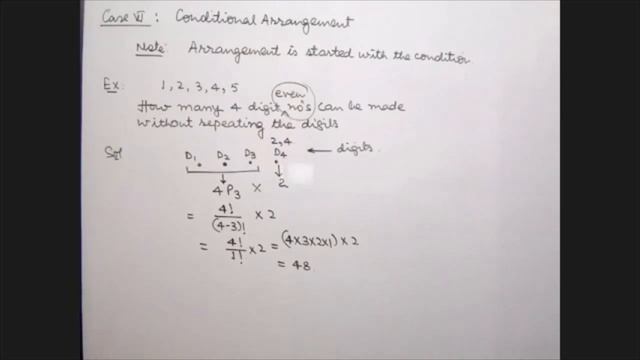 Case VI : Conditional Arrangement
Note: Arrangement is started with the condition
Ex: 1, 2, 3, 4, 5
even
How many 4 digit no's can be made
without repeating the digits
2, 4
Sol D1 D2 D3 D4 ← digits
↓ ↓
4P3 × 2
= 4!/(4-3)! × 2
= 4!/1! × 2 = (4×3×2×1) × 2
= 48